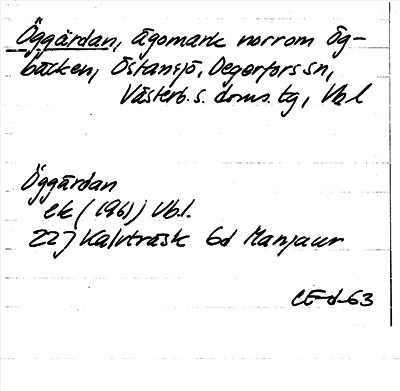 Öggårdan, ägomark norrom Ög-
bäcken, Östansjö, Degerfors sn,
Västerb. s. doms. tg, Vbl
Öggårdan
ek (1961) Vbl.
22J Kalvträsk 6d Manjaur
CE-d-63